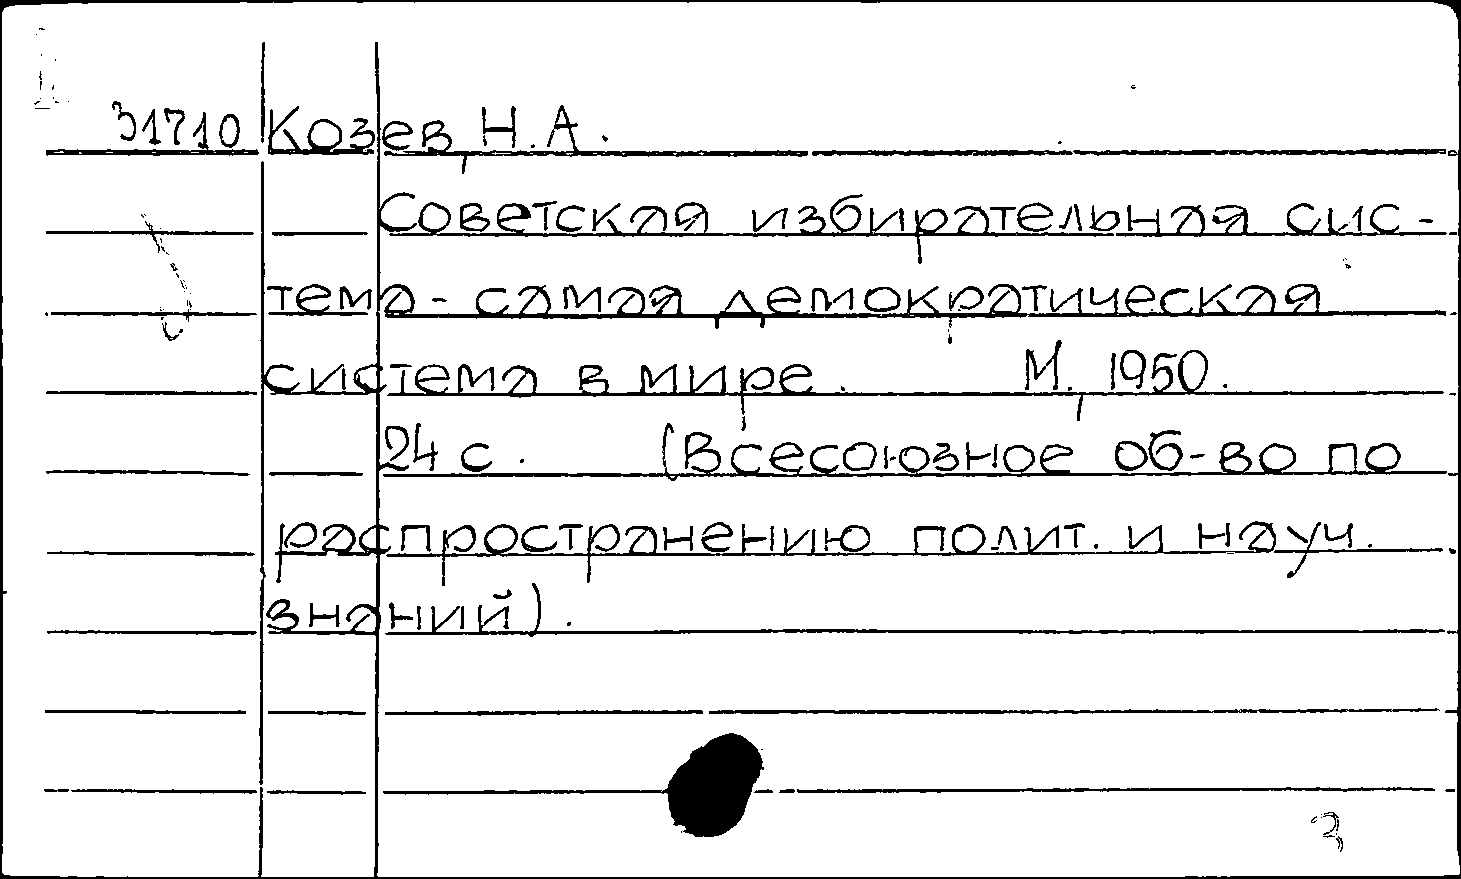 31710 Козев, Н.А.
Советская избирательная сис-
тема - самая демократическая
система в мире. М., 1950.
24 с. (Всесоюзное об-во по
распространению полит. и науч.
знаний).
3